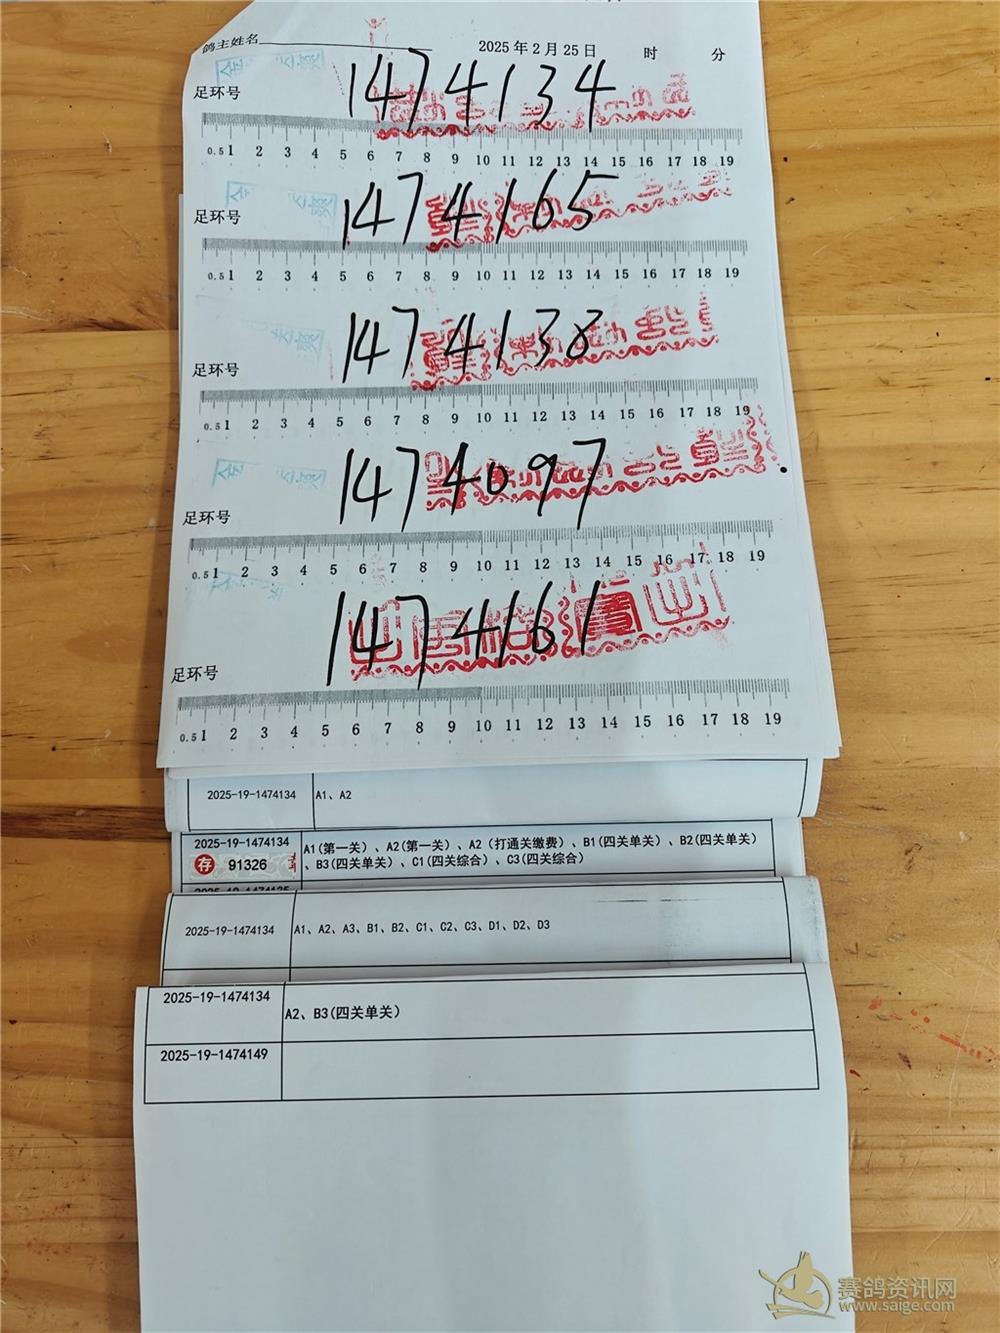 鸽主姓名 2025年2月25日 时 分
足环号 1474134
0.5 1 2 3 4 5 6 7 8 9 10 11 12 13 14 15 16 17 18 19
足环号 1474165
0.5 1 2 3 4 5 6 7 8 9 10 11 12 13 14 15 16 17 18 19
足环号 1474138
0.5 1 2 3 4 5 6 7 8 9 10 11 12 13 14 15 16 17 18 19
足环号 1474097
0.5 1 2 3 4 5 6 7 8 9 10 11 12 13 14 15 16 17 18 19
足环号 1474161
0.5 1 2 3 4 5 6 7 8 9 10 11 12 13 14 15 16 17 18 19
2025-19-1474134 A1、A2
2025-19-1474134 A1(第一关)、A2(第一关)、A2(打通关缴费)、B1(四关单关)、B2(四关单关)
存 91326 、B3(四关单关)、C1(四关综合)、C3(四关综合)
2025-19-1474134 A1、A2、A3、B1、B2、C1、C2、C3、D1、D2、D3
2025-19-1474134 A2、B3(四关单关)
2025-19-1474149
赛鸽资讯网
www.saige.com